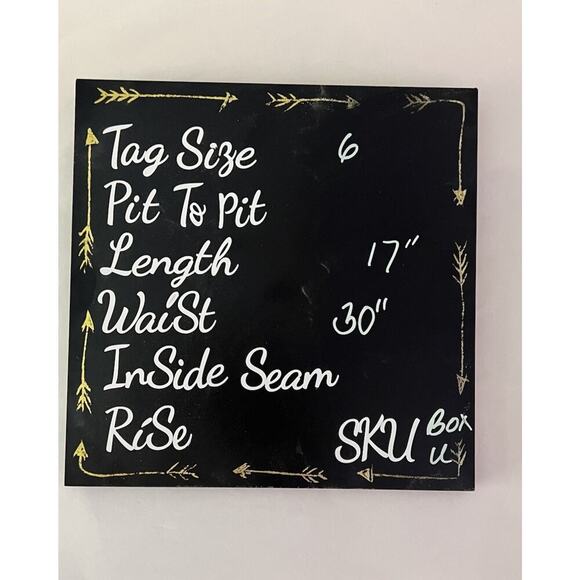 Tag Size 6
Pit To Pit
Length 17"
Waist 30"
InSide Seam
RiSe SKU Box U